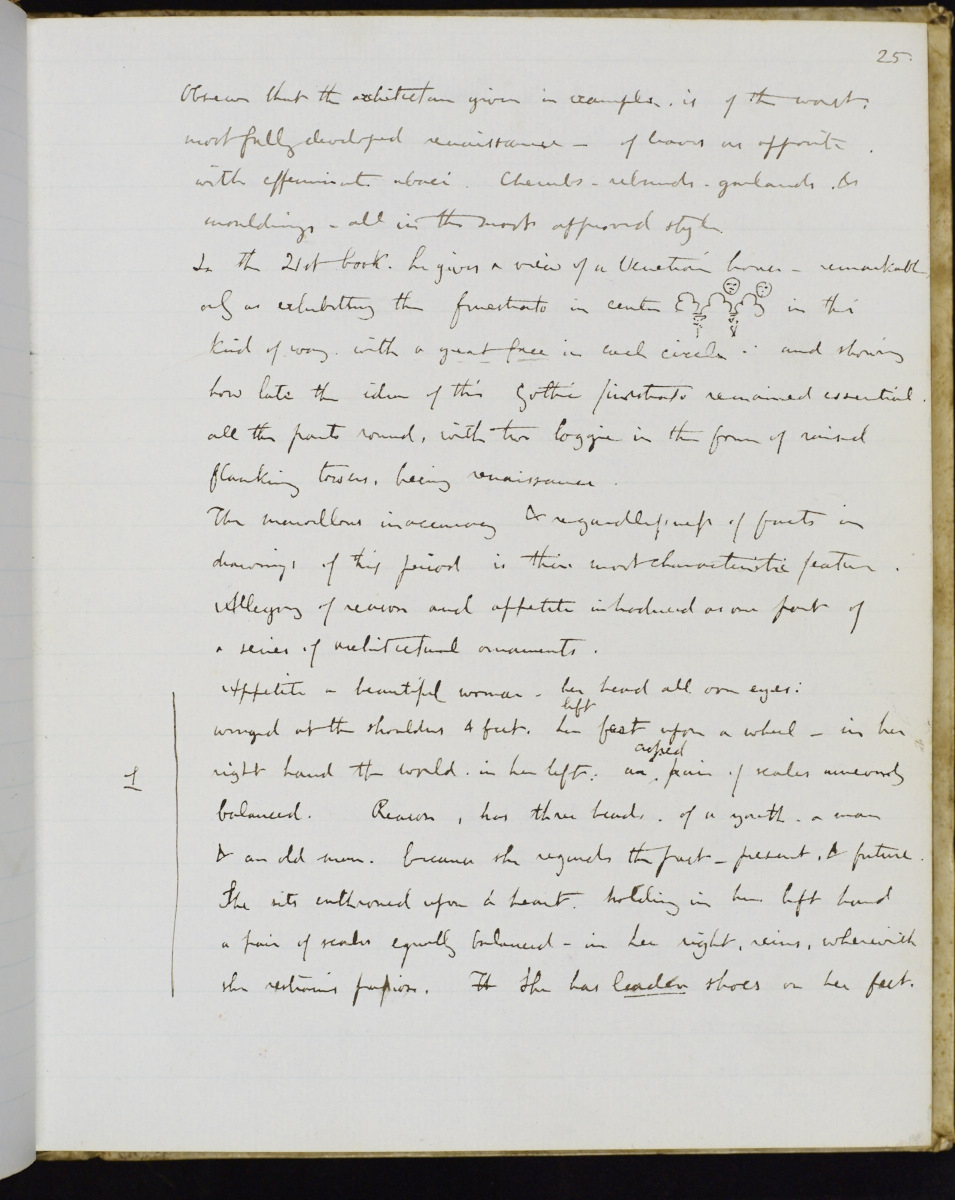 25.
Observe that the architecture given in example. is of the worst,
most fully developed renaissance – of leaves as opposite.
with effeminate abaci. Cherubs – ribands – garlands. &
mouldings – all in the most approved style.
In the 21st book. he gives a view of a Venetian house – remarkable
only as exhibiting the finestrato in center in this
kind of way. with a great face in each circle : and showing
how late the idea of this Gothic finestrato remained essential.
all the parts round, with two loggie in the form of raised
flanking towers, being renaissance.
The marvellous inaccuracy & regardlessness of facts in
drawings of this period is their most characteristic feature.
Allegory of reason and appetite introduced as one part of
a series of architectural ornaments.
Appetite a beautiful woman – her head all over eyes:
winged at the shoulders & feet. her left feet upon a wheel – in her
1
right hand the world. in her left. a crossed pair of scales unevenly
balanced. Reason, has three heads. of a youth. a man
& an old man. because she regards the past – present, & future.
She sits enthroned upon a heart. holding in her left hand
a pair of scales equally balanced – in her right, reins, wherewith
she restrains passion. She has leaden shoes on her feet.